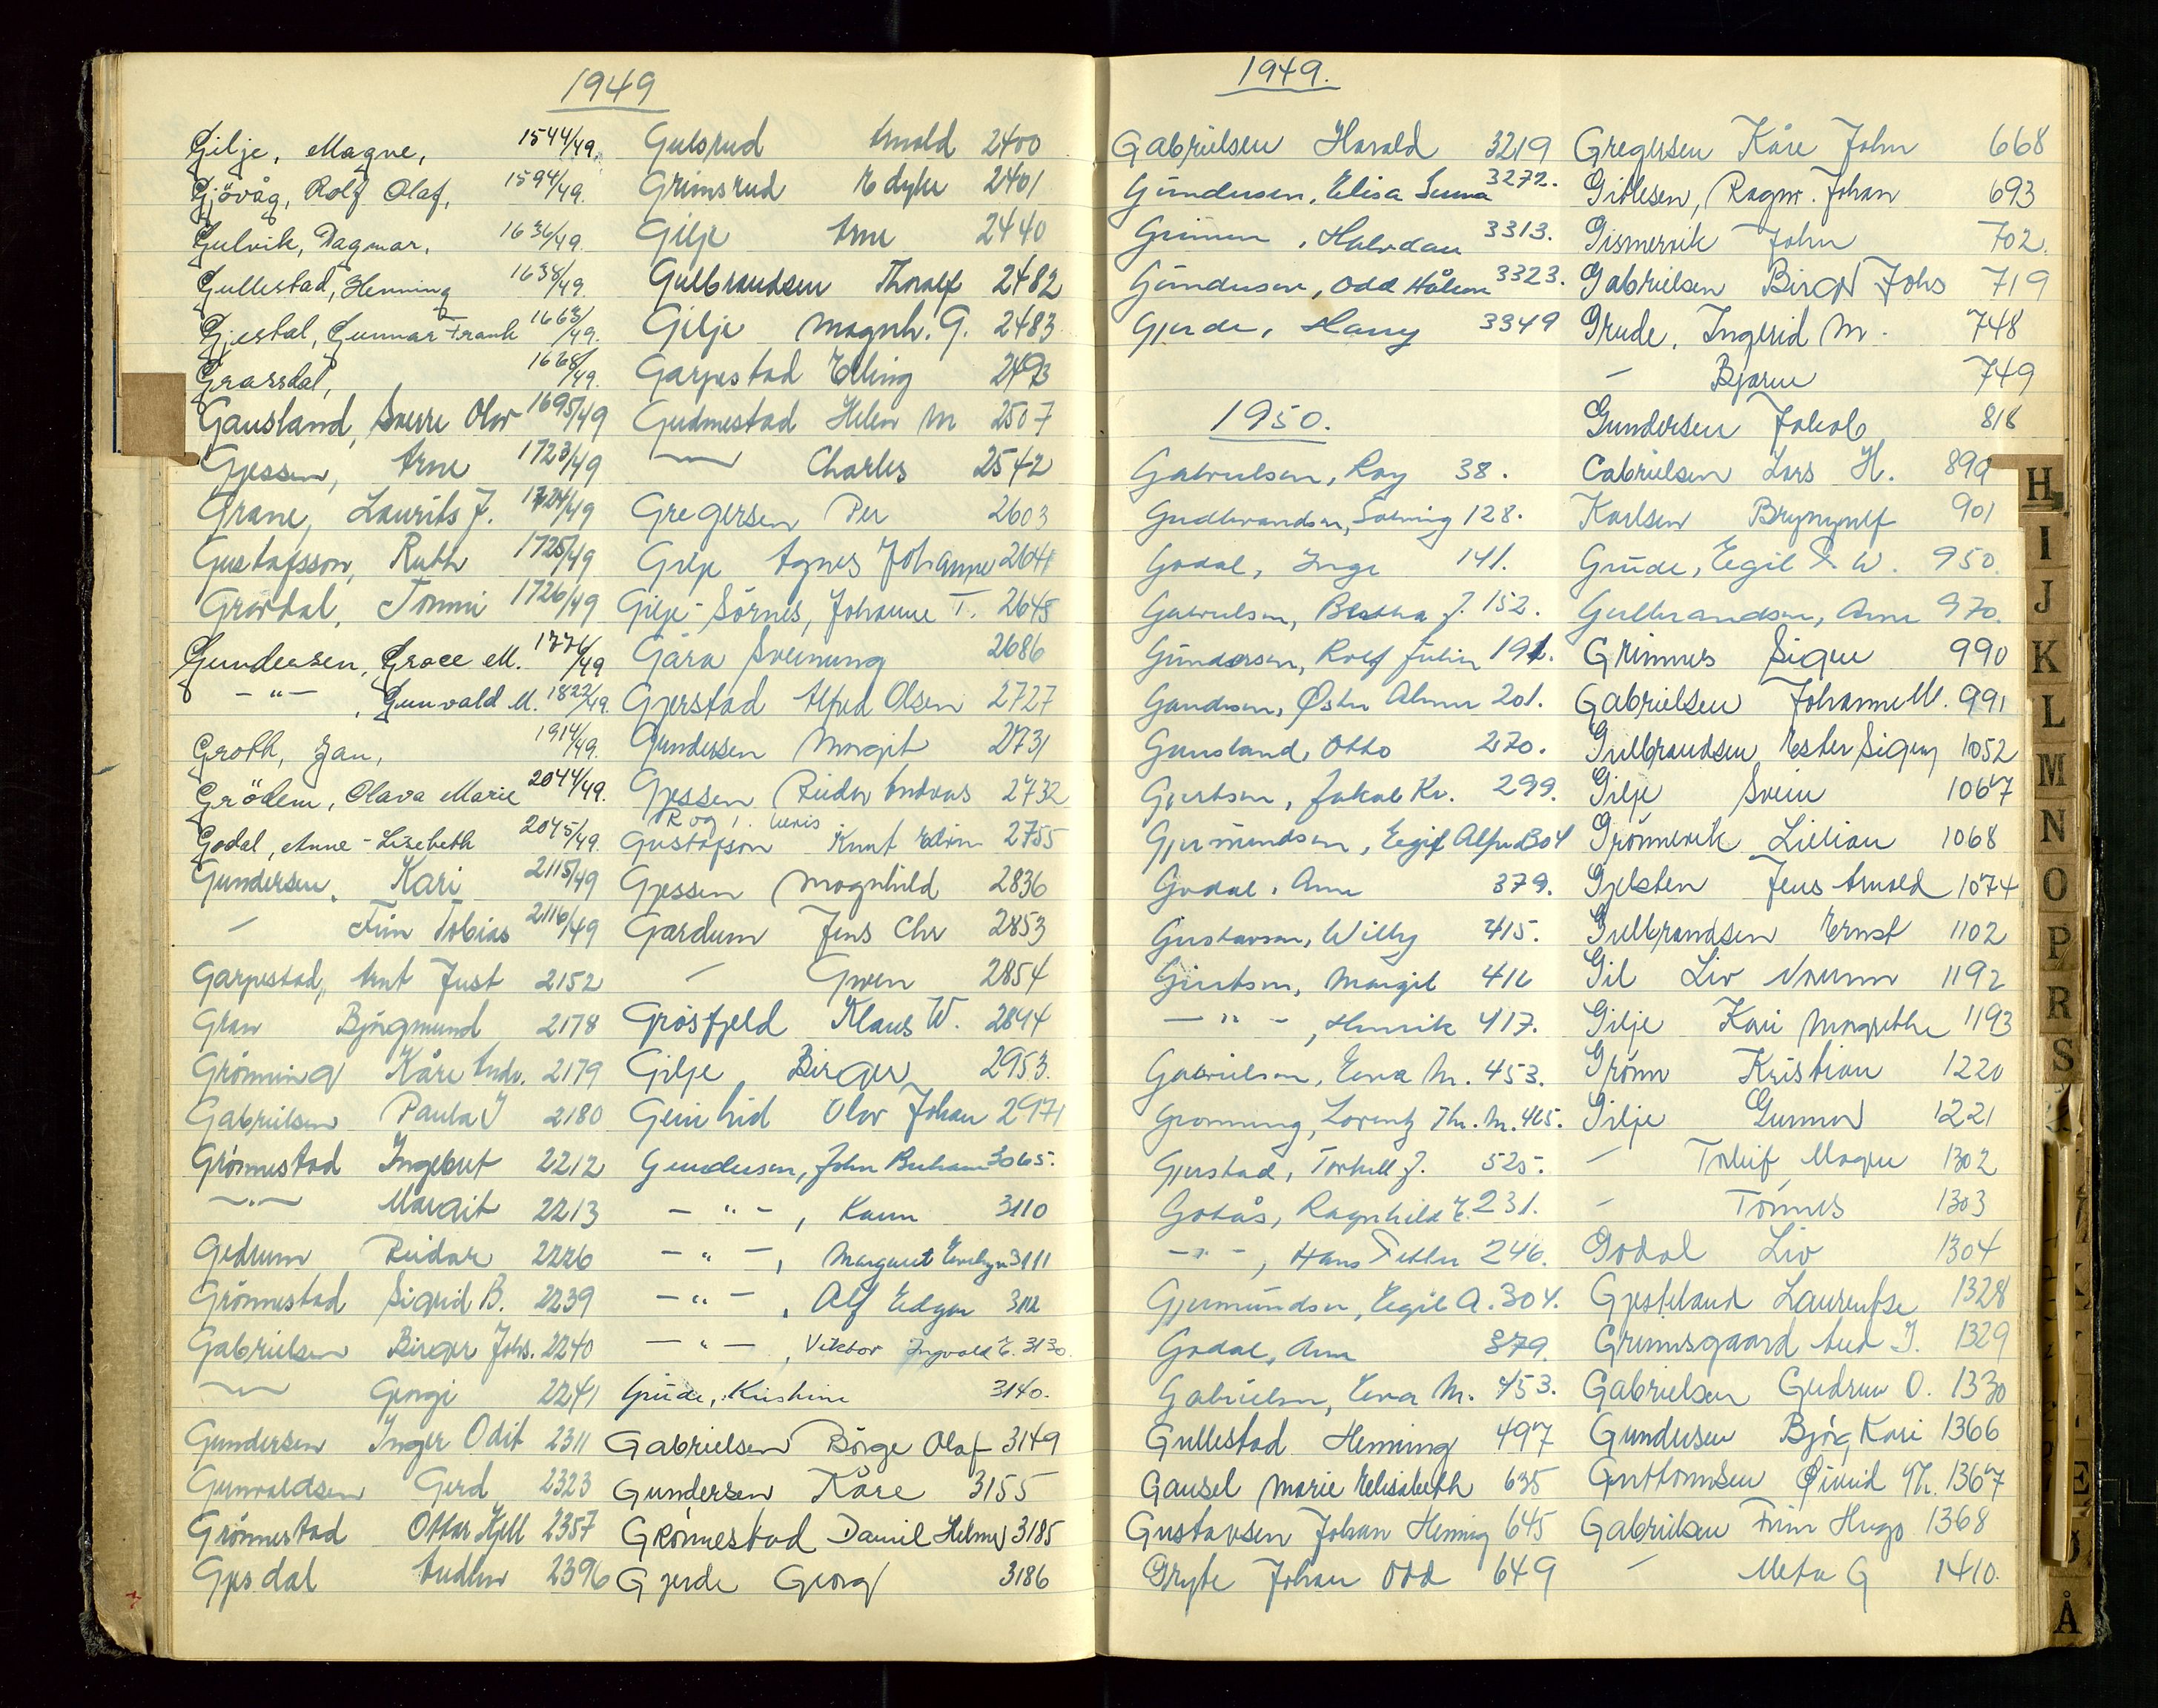 1949
Gilje, Magne, 1544/49.
Gjövåg, Rolf Olaf, 1594/49.
Gulvik, Dagmar, 1636/49.
Gullestad, Henning 1638/49.
Gjestal, Gunnar Frank 1663/49.
Grasdal, 1668/49.
Gausland, Sverre Olav 1695/49
Gjessen, Arne 1723/49
Grane, Laurits J. 1724/49
Gustafsson, Ruth 1725/49
Gravdal, Tommi 1726/49
Gundersen, Grace M. 1776/49
- " - , Gunvald M. 1822/49.
Groth, Jan, 1914/49.
Grödem, Olava Marie 2044/49.
Godal, Anne-Lisebeth 2045/49.
Gundersen, Kari 2115/49
- Finn Tobias 2116/49
Garpestad, Arnt Just 2152
Grav Björgmund 2178
Grönning Kåre Andr. 2179
Gabrielsen Paula J 2180
Grönnestad Ingebret 2212
-"- Margit 2213
Gudrum Reidar 2226
Grönnestad Sigrid B. 2239
Gabrielsen Birger Johs. 2240
-"- Georgi 2241
Gundersen Inger Odit 2311
Gunvaldsen Gerd 2323
Grönnestad Ottar Kjell 2357
Gjesdal Audhn 2396
Gulsrud Arnold 2400
Grimsrud Edyhe 2401
Gilje Arne 2440
Gulbrandsen Thoralf 2482
Gilje Magnh. G. 2483
Garpestad Elling 2493
Gudmestad Helen M 2507
-"- Charles 2542
Gregersen Per 2603
Gilje Agnes Johanne 2641
Gilje-Sörnes, Johanne T. 2645
Gåra Sveinung 2686
Gjerstad Alfred Olsen 2727
Gundersen Margit 2731
Gjessen Reidar Andreas 2732
Gustafson Knut Edvin 2755
Gjessen Magnhild 2836
Gardum Jens Chr 2853
- Gwen 2854
Grösfjeld Klaus W. 2894
Gilje Birger 2953.
Geinhid Olav Johan 2971
Gundersen, John 3065.
- " - , Karin 3110
- " - , Margaret Evelyn 3111
- " - , Alf Edgar 3112
- " - , Viktor Ingvald E. 3130.
Grude, Kristine 3140.
Gabrielsen Börge Olaf 3149
Gundersen Kåre 3155
Grönnestad Daniel Helmer 3185
Gjerde Georg 3186
1949.
Gabrielsen Harald 3219
Gundersen, Elisa 3272.
Grimen, Halvdan 3313.
Gundersen, Odd Håkon 3323.
Gjerde, Harry 3349
1950.
Gabrielsen, Roy 38.
Gudbrandsen, Solveig 128.
Godal, Inge 141.
Gabrielsen, Bertha J. 152.
Gundersen, Rolf Julin 191.
Gundersen, Øster 201.
Gausland, Otto 270.
Gjertsen, Jakob Kr. 299.
Gjermundsen, Eegil Alfred 304
Godal, Ann 379.
Gustavson, Willy 415.
Giertsen, Margit 416
- " - , Henrik 417.
Gabrielsen, Eva M. 453.
Gronning, Lorentz Th. M. 465.
Gjerstad, Torkell J. 525.
Gotås, Ragnhild E. 231.
- " - , Hans Petter 246.
Gjermundsen, Eegil A. 304.
Godal, Ann 379.
Gabrielsen, Eva M. 453.
Gullestad Henning 497
Gausel Marie Elisabeth 635
Gustavsen Johan Henning 645
Gryte Johan Odd 649
Gregersen Kåre John 668
Gitlesen, Ragnv. Johan 693
Gismervik John 702.
Gabrielsen Birger Johs 719
Grude, Ingerid M. 748
- Bjarne 749
Gundersen Jakob 818
Gabrielsen Lars H. 899
Karlsen Brynjulf 901
Grude, Eegil S. W. 950.
Gulbrandsen, Arne 970.
Grimnes Signe 990
Gabrielsen Johanne M. 991
Gulbrandsen Ester Signy 1052
Gilje Svein 1067
Grönnevik Lillian 1068
Gjelsten Jens Arnold 1074
Gulbrandsen Ernst 1102
Gil Liv 1192
Gilje Kari Magrethe 1193
Grönn Kristian 1220
Gilje Gunnar 1221
- Torleif Magne 1302
- Tönnes 1303
Godal Liv 1304
Gjesteland Laurentse 1328
Grimsgaard Aud J. 1329
Gabrielsen Gudrun O. 1330
Gundersen Bjørg Kari 1366
Guttormsen Øivind Th. 1367
Gabrielsen Finn Hugo 1368
- Meta G 1410.
H
I
J
K
L
M
N
O
P
R
S
Å